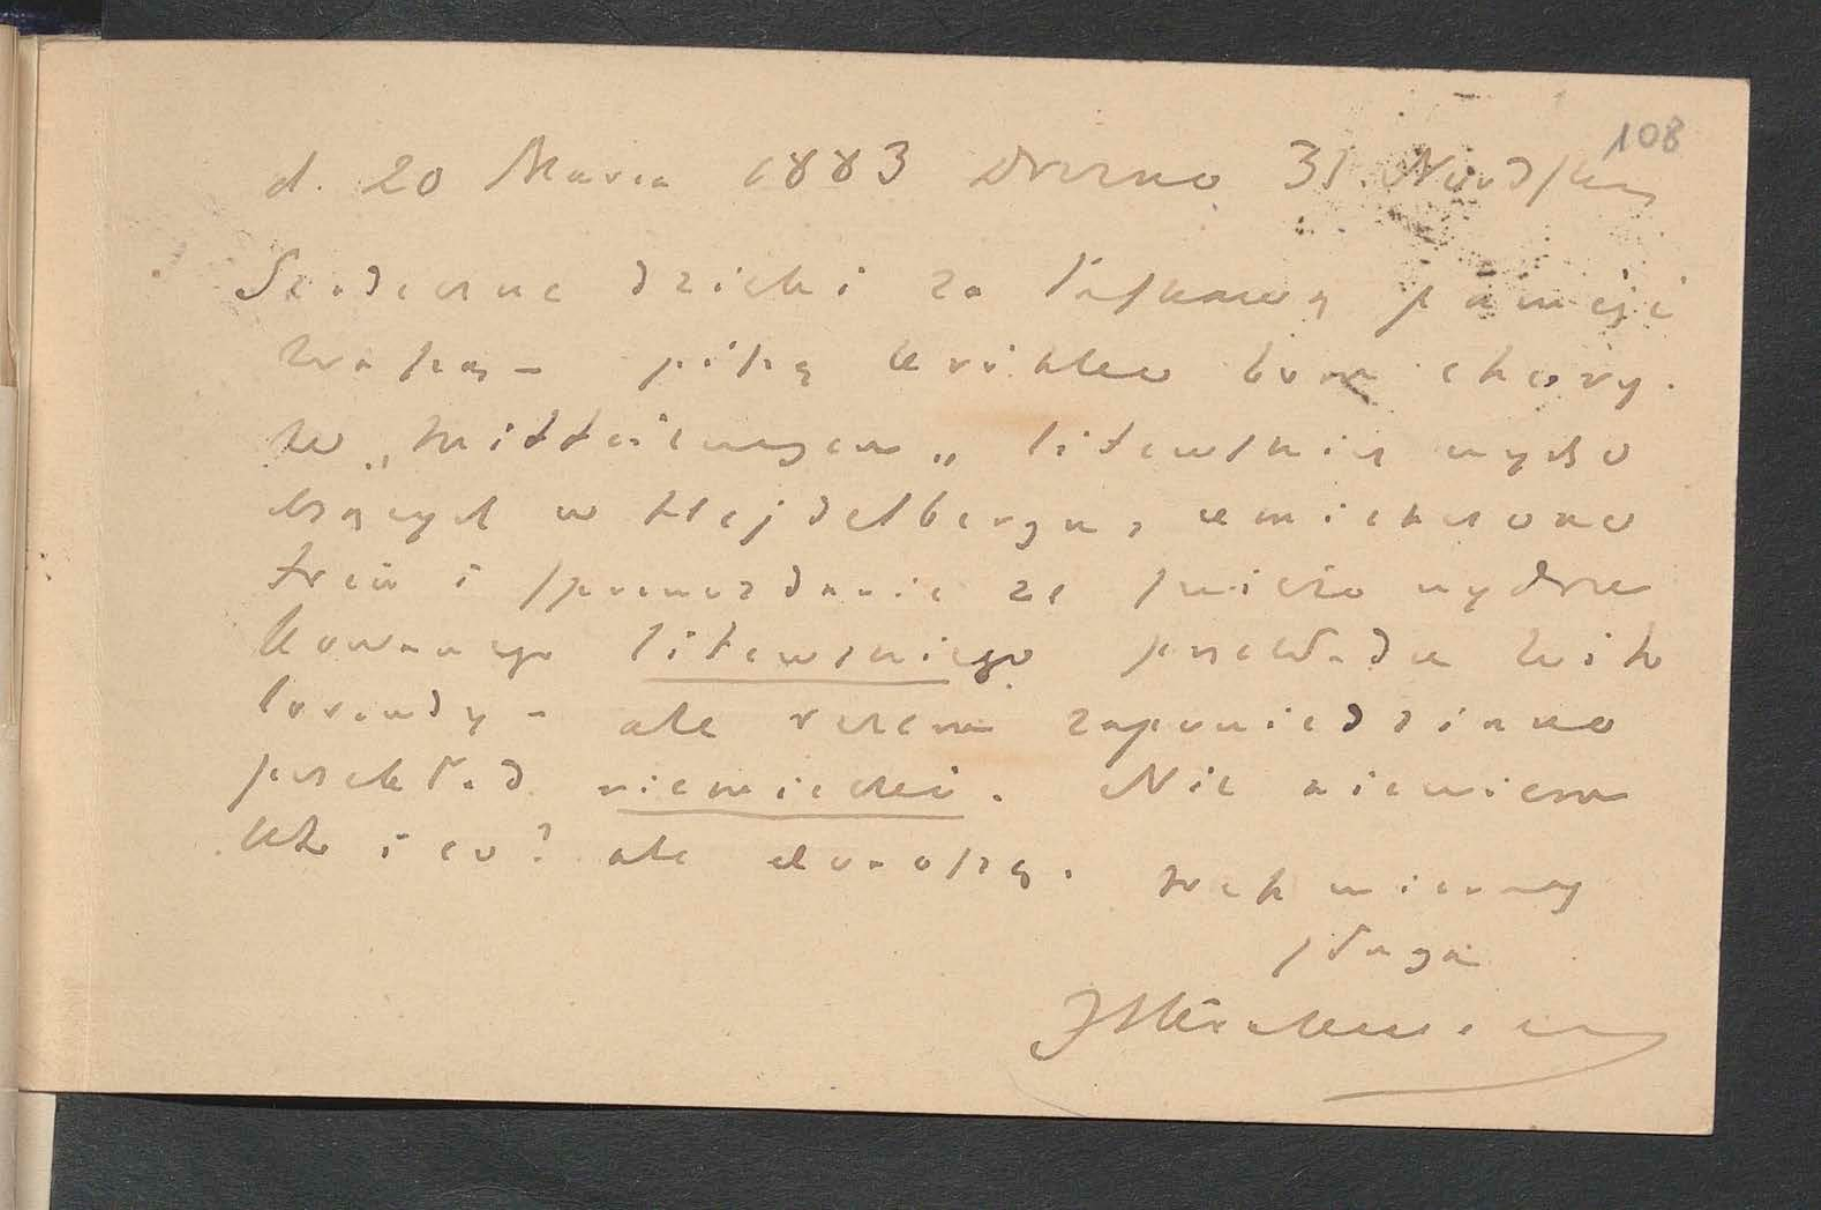 108
d. 20 Marca 1883 Drezno 31. Nordstr
Serdeczne dzięki za łaskawą pamięć
Waszą – piszę krótko bom chory.
W „Mittheilungen„ litewskich wycho
dzących w Hejdelbergu, umieszczono
treść i sprawozdanie ze świeżo wydru
kowanego litewskiego przekładu Wito
loraudy – ale razem zapowiedziano
przekład niemiecki. Nic niewiem
kto i co? ale donoszę. wierny
sługa
JIKraszewski